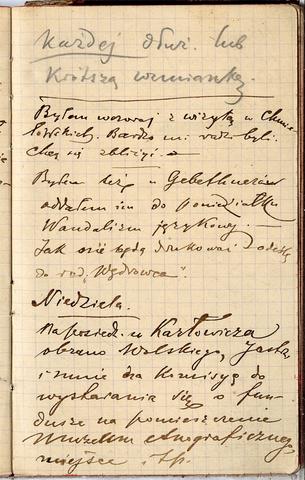 Każdej dłuż. lub
krótszą wzmiankę.
Byłem wczoraj z wizytą u Chmie-
lowskich. Bardzo mi radzi byli.
Chcą się zbliżyć.
Byłem też u Gebethnerów
oddałem im do poniedziałku
Wandalizm językowy.
Jak nie będą drukować odeślę
do red. "Wędrowca".
Niedziela.
Na posiedz. u Karłowicza
obrano Wolskiego,
i mnie za Komisyę do
wystarania się o fun-
dusze na pomieszczenie
Muzeum etnograficznego,
miejsce itp.